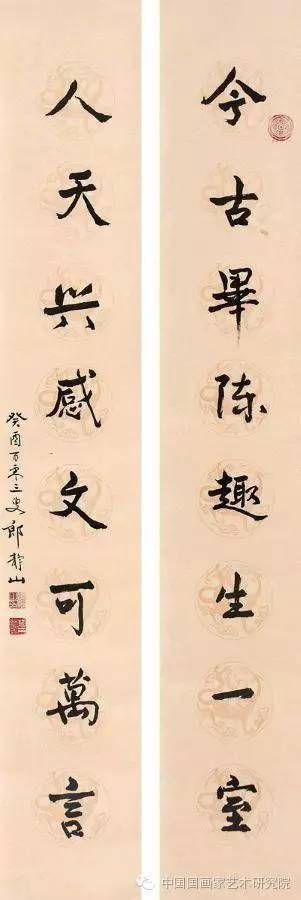 今古畢陈趣生一室
人天興感文可萬言
癸酉百零三叟郎静山
中国国画家艺术研究院